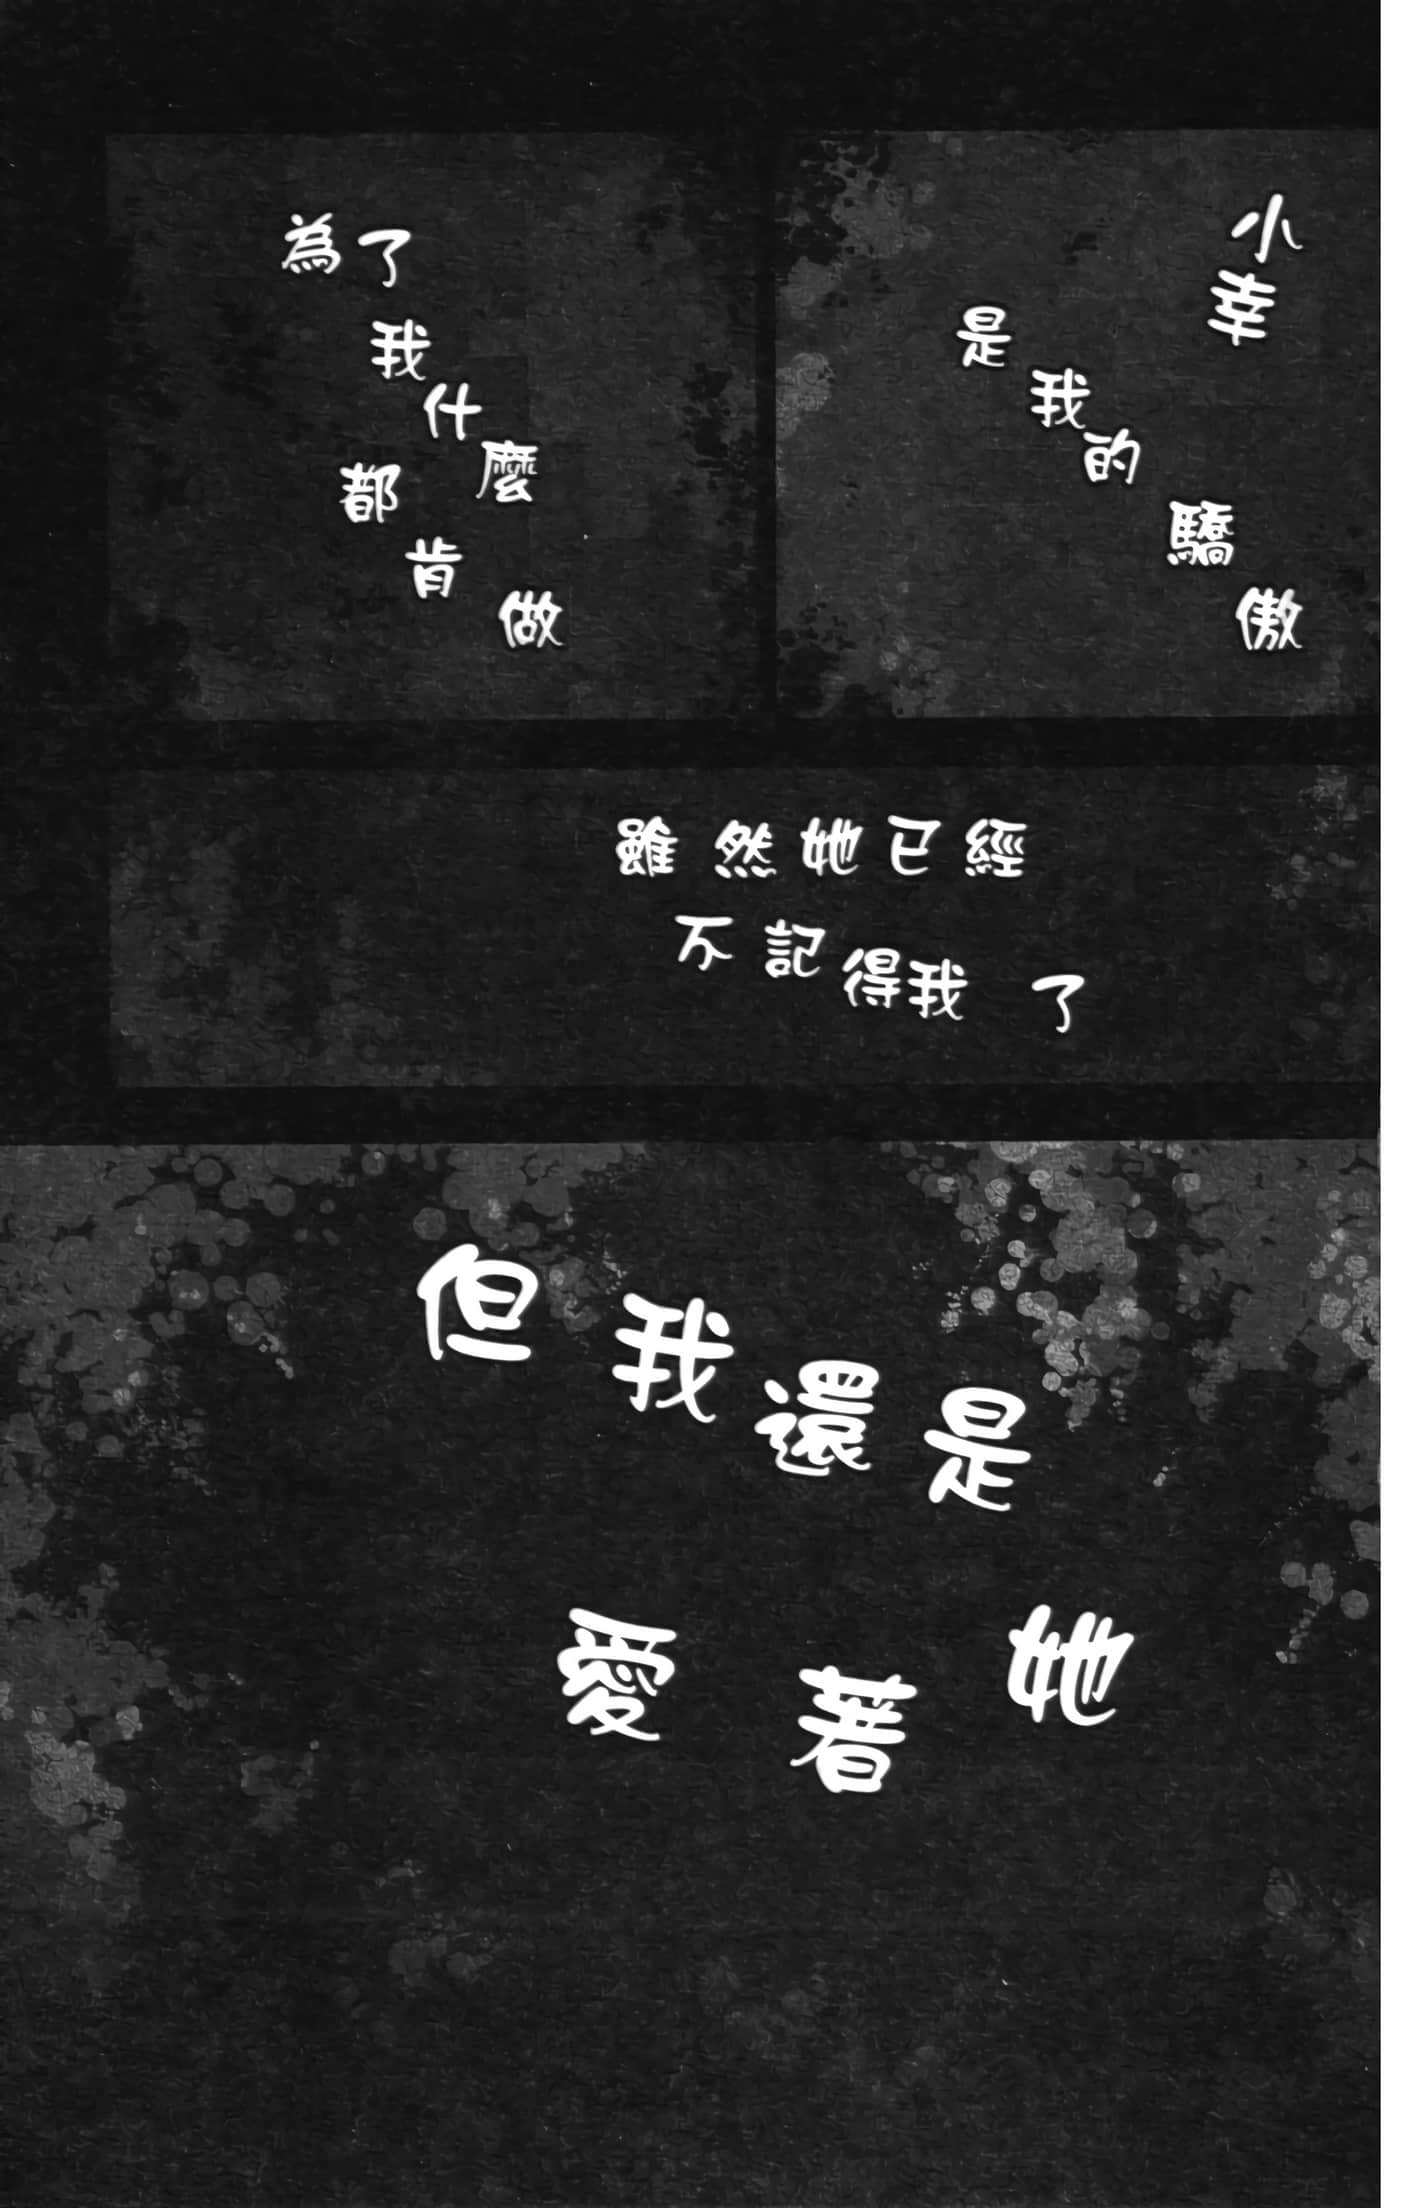 小幸
是我的驕傲
為了
我什麼
都肯做
雖然她已經
不記得我了
但我還是
愛著她